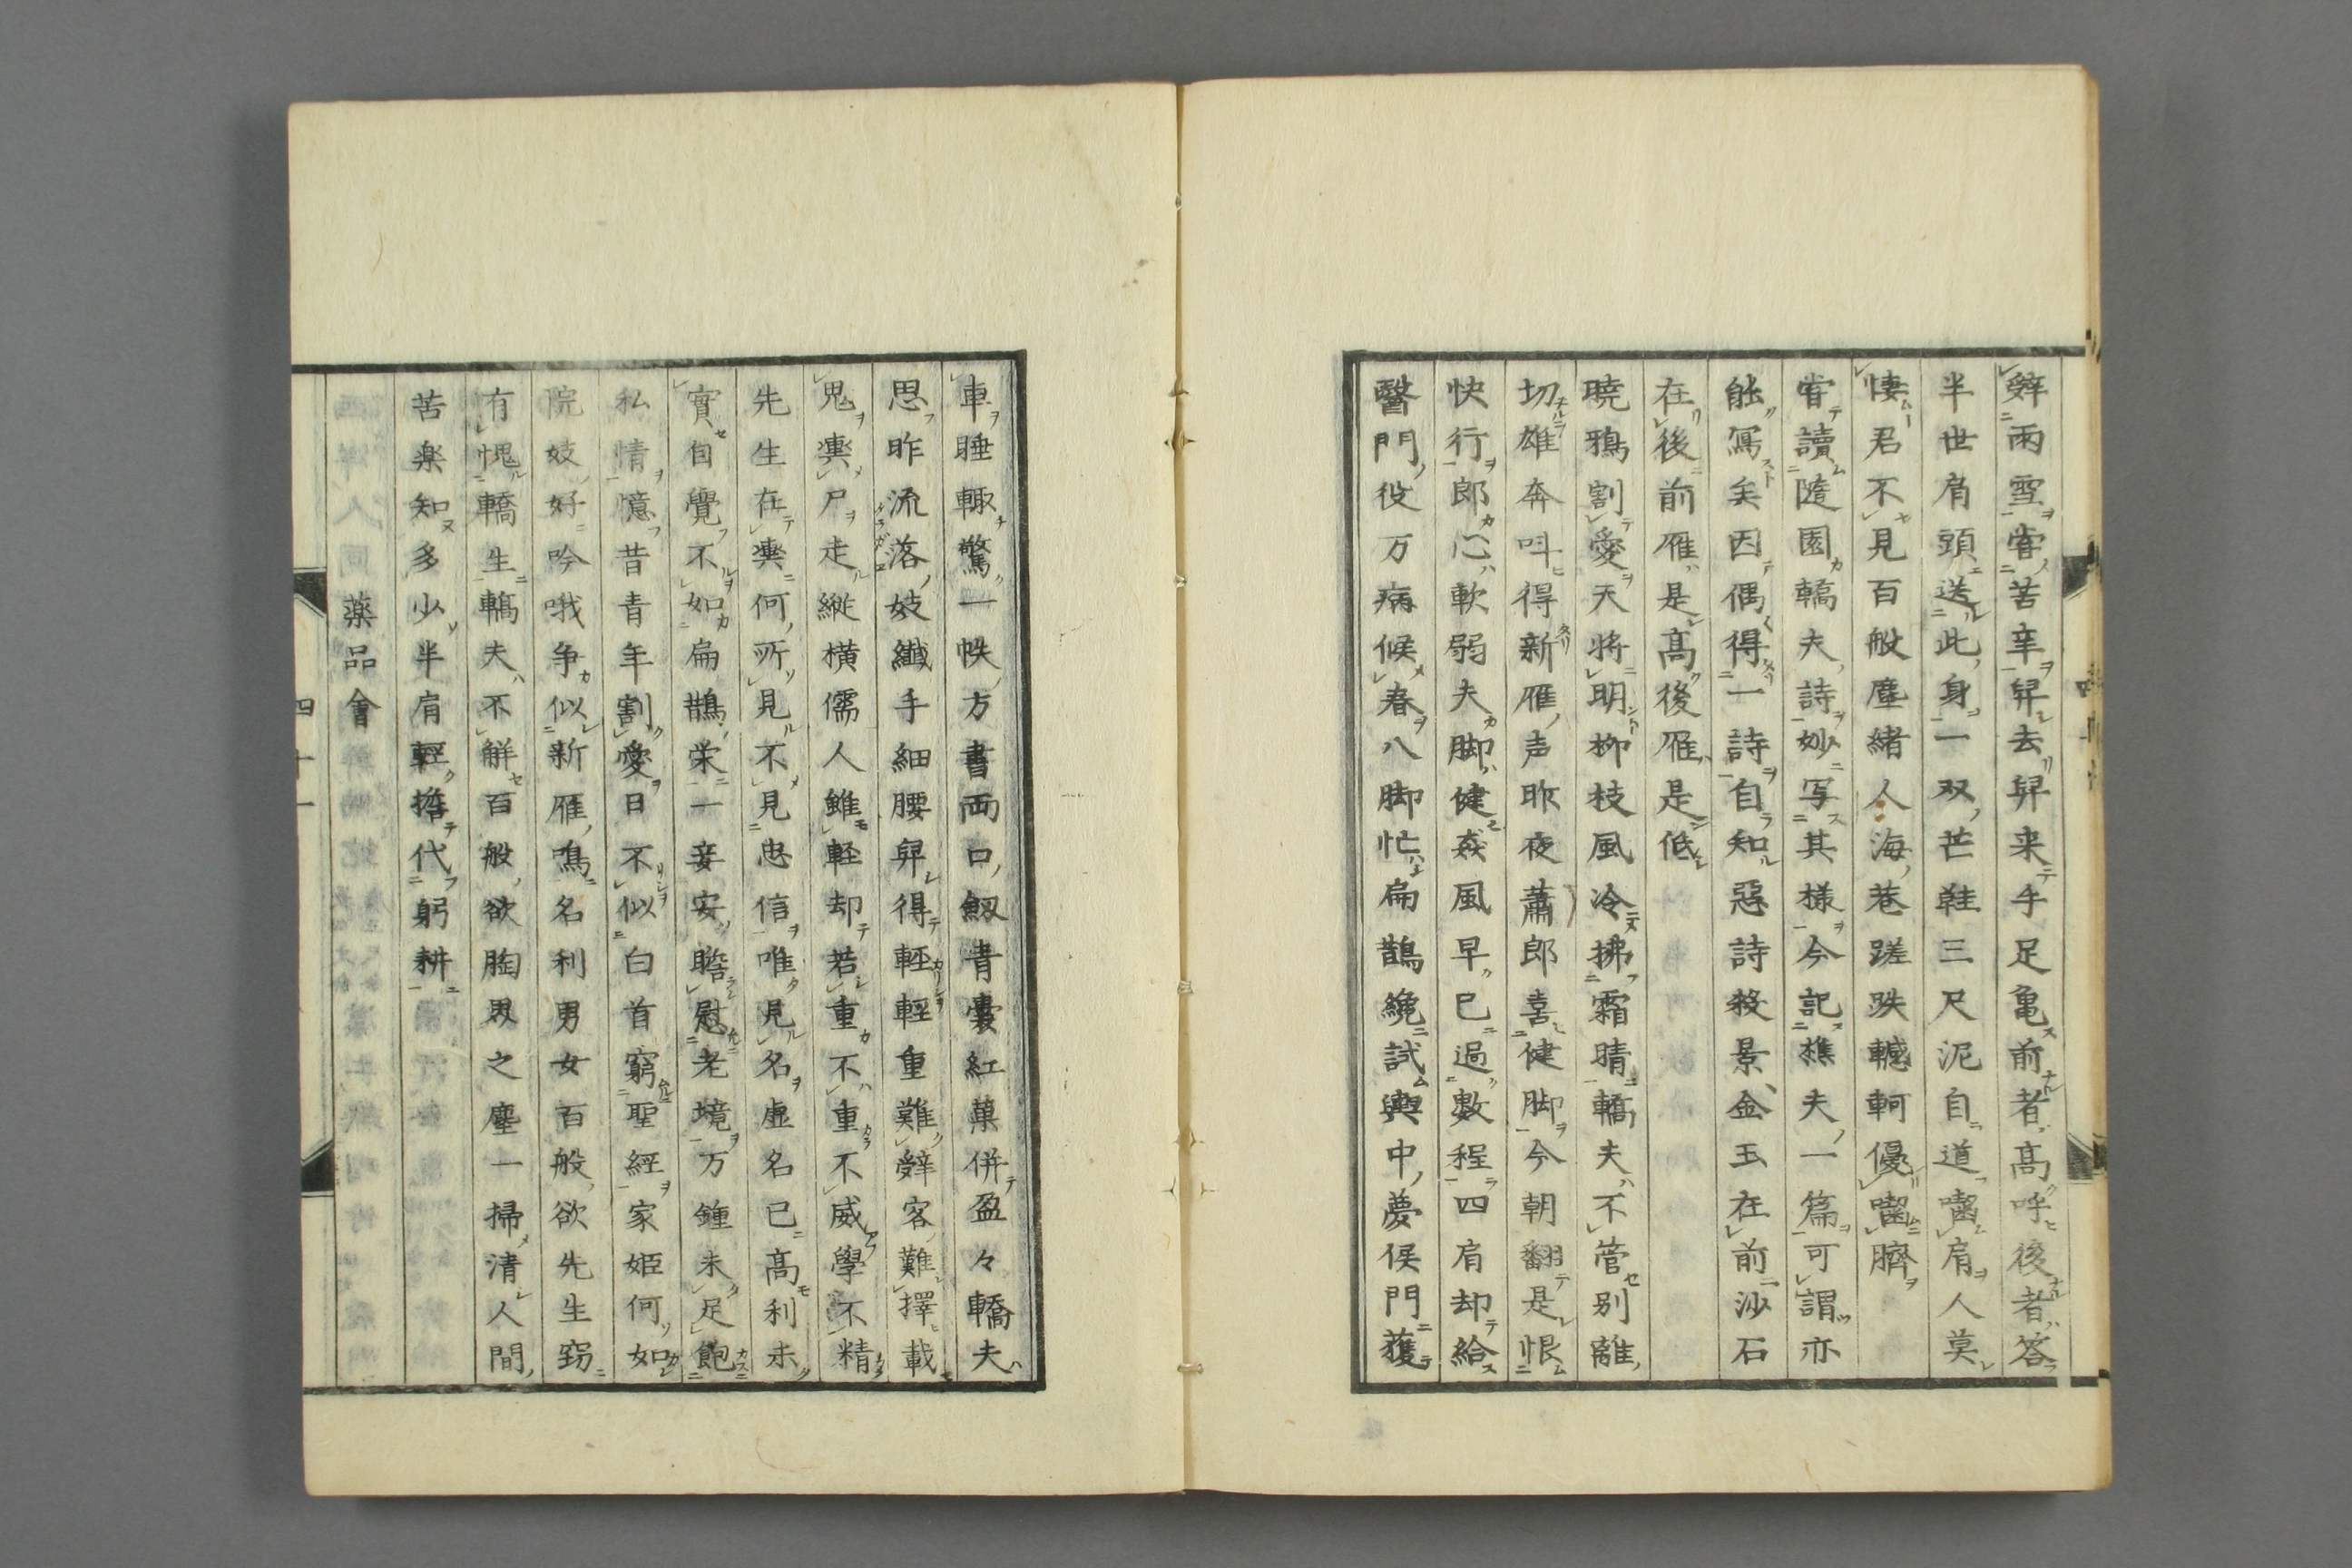 辤雨雪甞苦辛舁去舁来手足亀前者髙呼後者答
半世肩頭送此身一双芒鞋三尺泥自道囓肩人莫
悽君不見百般塵緒人海巷蹉跌轗軻優囓臍
甞讀隨園轎夫詩妙写其様今記樵夫一篇可謂亦
能冩矣因偶得一詩自知惡詩殺景金玉在前沙石
在後前雁是髙後雁是低
曉鴉割愛天将明柳枝風冷拂霜晴轎夫不管别離
切雄奔呌得新雁声昨夜蕭郎喜健脚今朝翻是恨
快行郎心軟弱夫脚健姦風早已過數程四肩却給
醫門役万病候春八脚忙扁鵲纔試輿中夢侯門獲
車睡輙驚一帙方書両口劔青嚢紅菓併盈々轎夫
思昨流落妓纖手細腰舁得輕輕重難辤客難擇載
鬼輿尸走縦横儒人雖軽却若重不重不威學不精
先生在輿何所見不見忠信唯見名虚名已髙利未
實自覺不如扁鵲栄一妾安瞻慰老境万鍾未足飽
私情憶昔青年割愛日不似白首窮聖經家姫何如
院妓好吟哦争似新雁鳴名利男女百般欲先生窃
有愧轎生轎夫不解百般欲胸裏之塵一掃清人間
苦楽知多少半肩輕擔代躬耕
薬品會
四十一